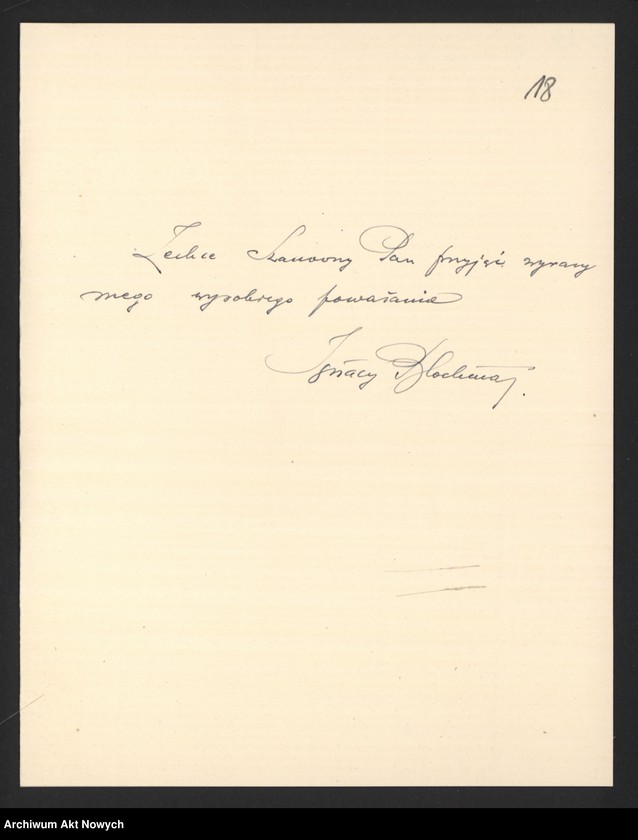 18
Zechce Szanowny Pan przyjąć wyrazy
mego wysokiego poważania
Ignacy
Archiwum Akt Nowych